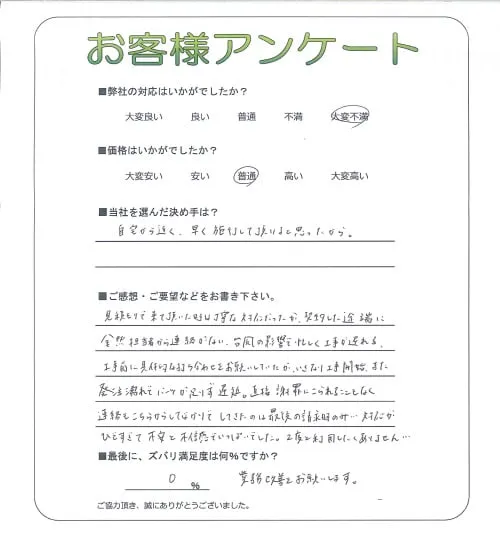 お客様アンケート
■弊社の対応はいかがでしたか？
大変良い 良い 普通 不満 大変不満
■価格はいかがでしたか？
大変安い 安い 普通 高い 大変高い
■当社を選んだ決め手は？
自宅から近く、早く施工して頂けると思ったから。
■ご感想・ご要望などをお書き下さい。
見積もりで来て頂いた時は丁寧な対応だったが、契約した途端に
全然担当者から連絡がない、台風の影響で忙しく工事が遅れる、
工事前に具体的な打ち合わせをお願いしていたが、いきなり工事開始、また
発注漏れでパーツが足りず遅延。直接謝罪にこられることもなく
連絡もこちらからしてばかりで してきたのは最後の請求時のみ… 対応が
ひどすぎて 不安と不信感でいっぱいでした。2度と利用したくありません…
■最後に、ズバリ満足度は何%ですか？
0 % 業務改善をお願いします。
ご協力頂き、誠にありがとうございました。